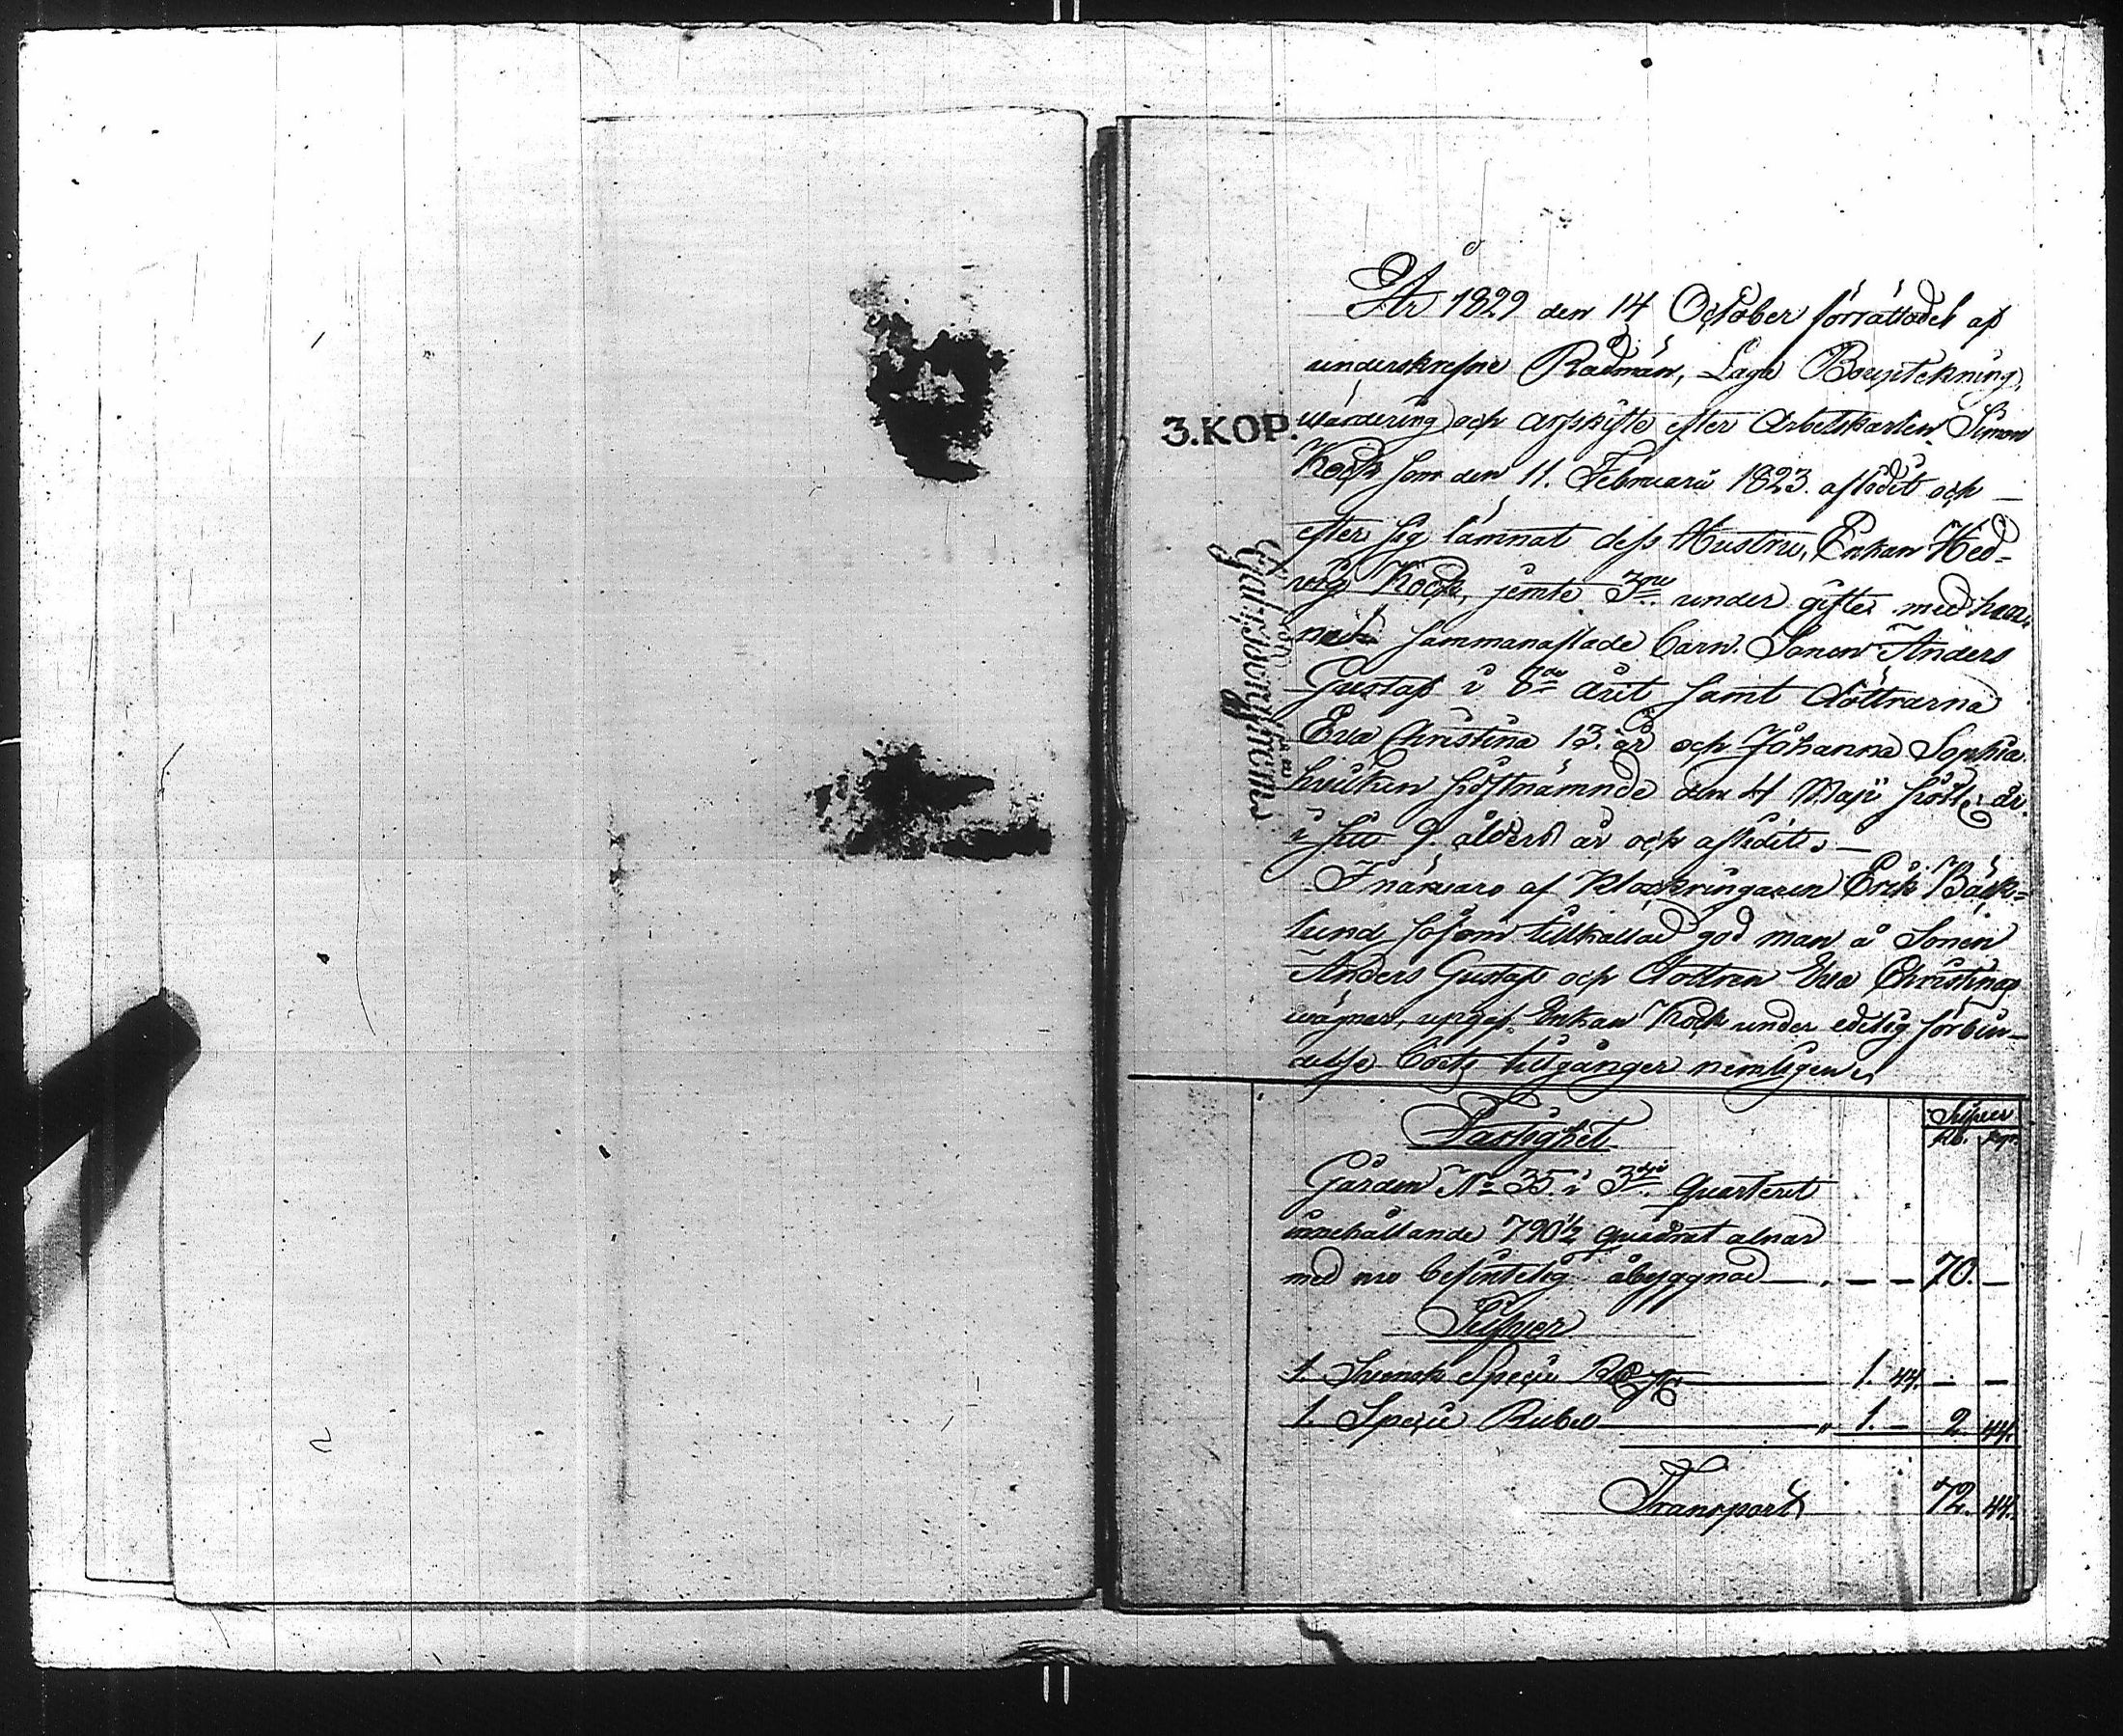 År 1829 den 14 October förrättades af
underskrefne Rådmän, Laga Bouptekning,
wärdering och arfskifte efter Arbetskarlen Simon
3.KOP.
Kock som den 11. Februarii 1823. aflidit och
efter sig lämnat dess Hustru, Enkan Hed-
vig Kock, jemte 3ne under giftet med hen-
ne sammanaflade barn. Sonen Anders
Gustaf i 8de året samt döttrarna
Eva Christina 13. år och Johanna Sophia
hvilken sistnämnde den 4 Maji sistl. år
i sitt 9. ålders år och aflidit. —
I närvaro af Klockringaren Erik Bäck-
lund såsom tillkallad god man å Sonen
Anders Gustafs och dottren Eva Christinas
wägnar, uppgaf Enkan Kock under edelig förbin-
delse boets tillgångar nemligen
Silfver
Rb. kop.
Fastighet
Gården No 35. i 3dje Quarteret
innehållande 790 1/2 quadrat alnar
med nu befintelig åbyggnad — 70. —
Silfver
1. Svensk Specie — 1. 44. — —
1. Specie Rubel — " 1. — 2. 44.
Transport 72. 44.